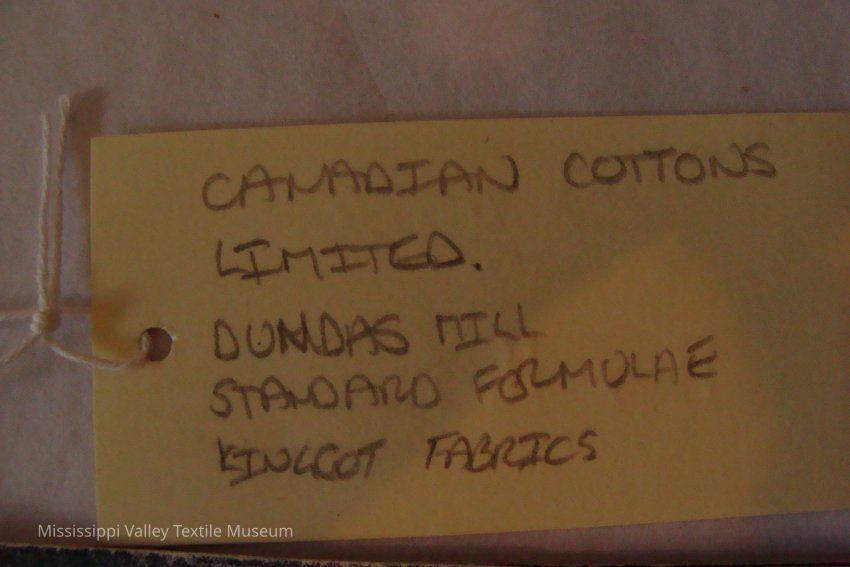 CANADIAN COTTONS
LIMITED.
DUNDAS MILL
STANDARD FORMULAE
FABRICS
Mississippi Valley Textile Museum